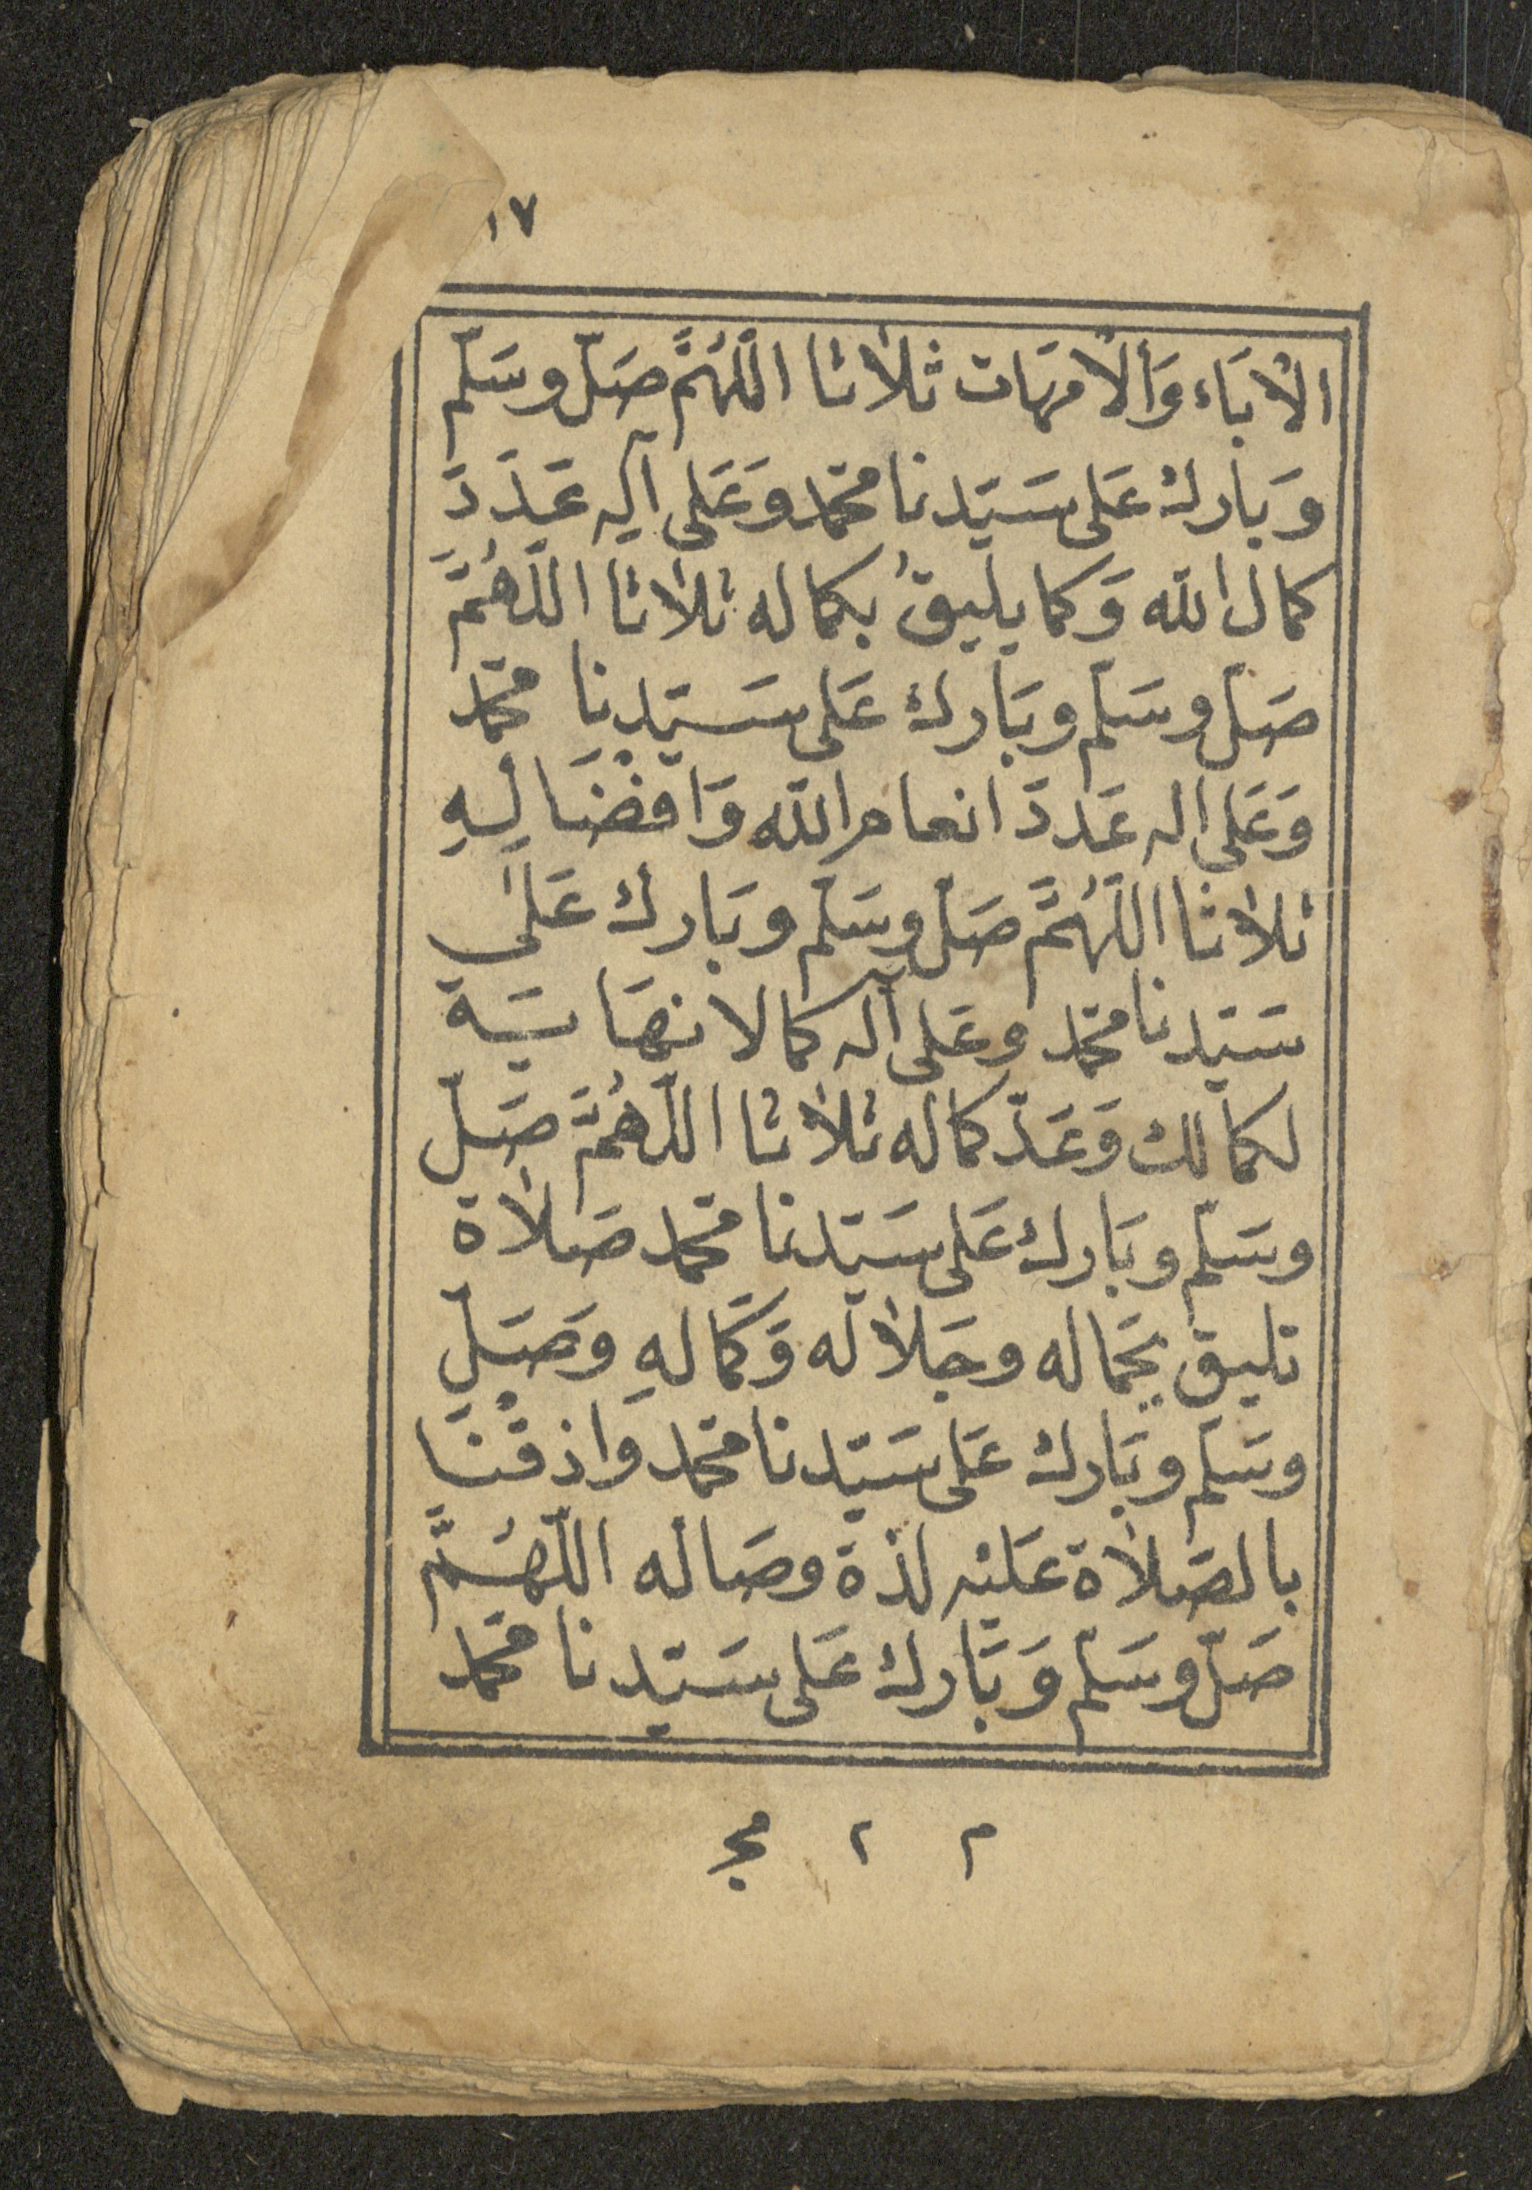 ١٧
الاٰبَاء وَألاُمهَات ثلاٰثا اللّٰهُمَّ صَلّ وسَلّم
وَبَارك عَلى سَيّدنا محمّد وَعَلى آلِه عَدَدَ
كمال الله وَكما يليقُ بكماله ثلاٰثا اللّٰهُمَّ
صَلّ وسَلّم وبَارك عَلى سَيّدِنا محمّد
وَعَلى اله عَددَ انعام الله وَافْضَالِهِ
ثلاٰثا اللّٰهُمَّ صَلّ وسَلّم وبَارك عَلىٰ
سَيّدنا محمّد وعَلى آله كما لا نهَايَة
لكمالك وَعَدّ كماله ثلاٰثا اللّٰهُمَّ صَلّ
وسَلّم وبَارك عَلى سَيّدنا محمّد صَلاٰة
تليق بجَماله وجَلاٰله وَكَمَالهِ وَصَلِّ
وسَلّم وبَارك عَلى سَيّدنا محمّد وَاذقْنَا
بالصَّلاٰة عَليْه لذة وصَاله اللّٰهُمَّ
صَلّ وسَلّم وَبَارك عَلى سَيّدنا محمّد
م ٢ مجر